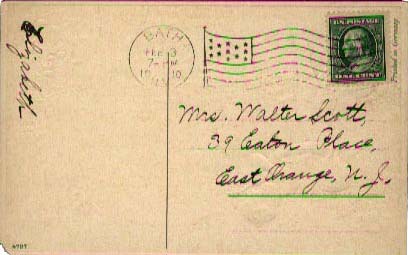 Elizabeth
BATH
FEB 3
7-PM
1910
U.S. POSTAGE
ONE CENT
Printed in Germany
Mrs. Walter Scott,
39 Eaton Place,
East Orange, N. J.